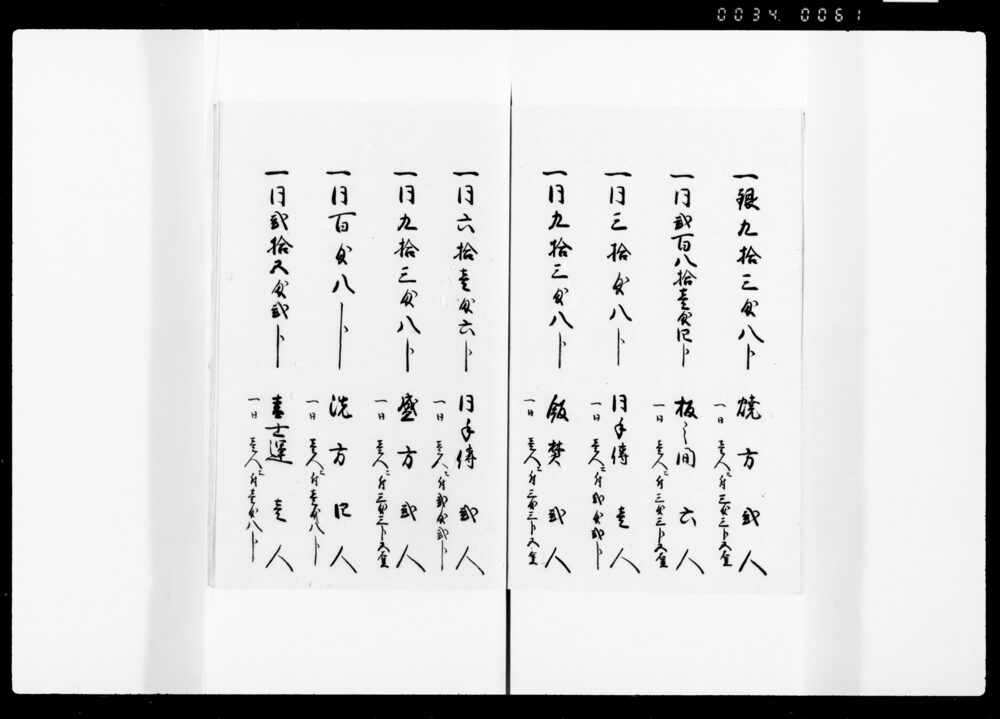 0034 0061
一銀九拾三匁八分
焼方弐人
一日壱人ニ付三匁三分五厘
一同弐百八拾壱匁四分
板之間六人
一日壱人ニ付三匁三分五厘
一同三拾匁八分
同手傳壱人
一日壱人ニ付弐匁弐分
一同九拾三匁八分
飯焚弐人
一日壱人ニ付三匁三分五厘
一同六拾壱匁六分
同手傳弐人
一日壱人ニ付弐匁弐分
一同九拾三匁八分
盛方弐人
一日壱人ニ付三匁三分五厘
一同百匁八分
洗方四人
一日壱人ニ付壱匁八分
一同弐拾五匁弐分
運壱人
一日壱人ニ付壱匁八分